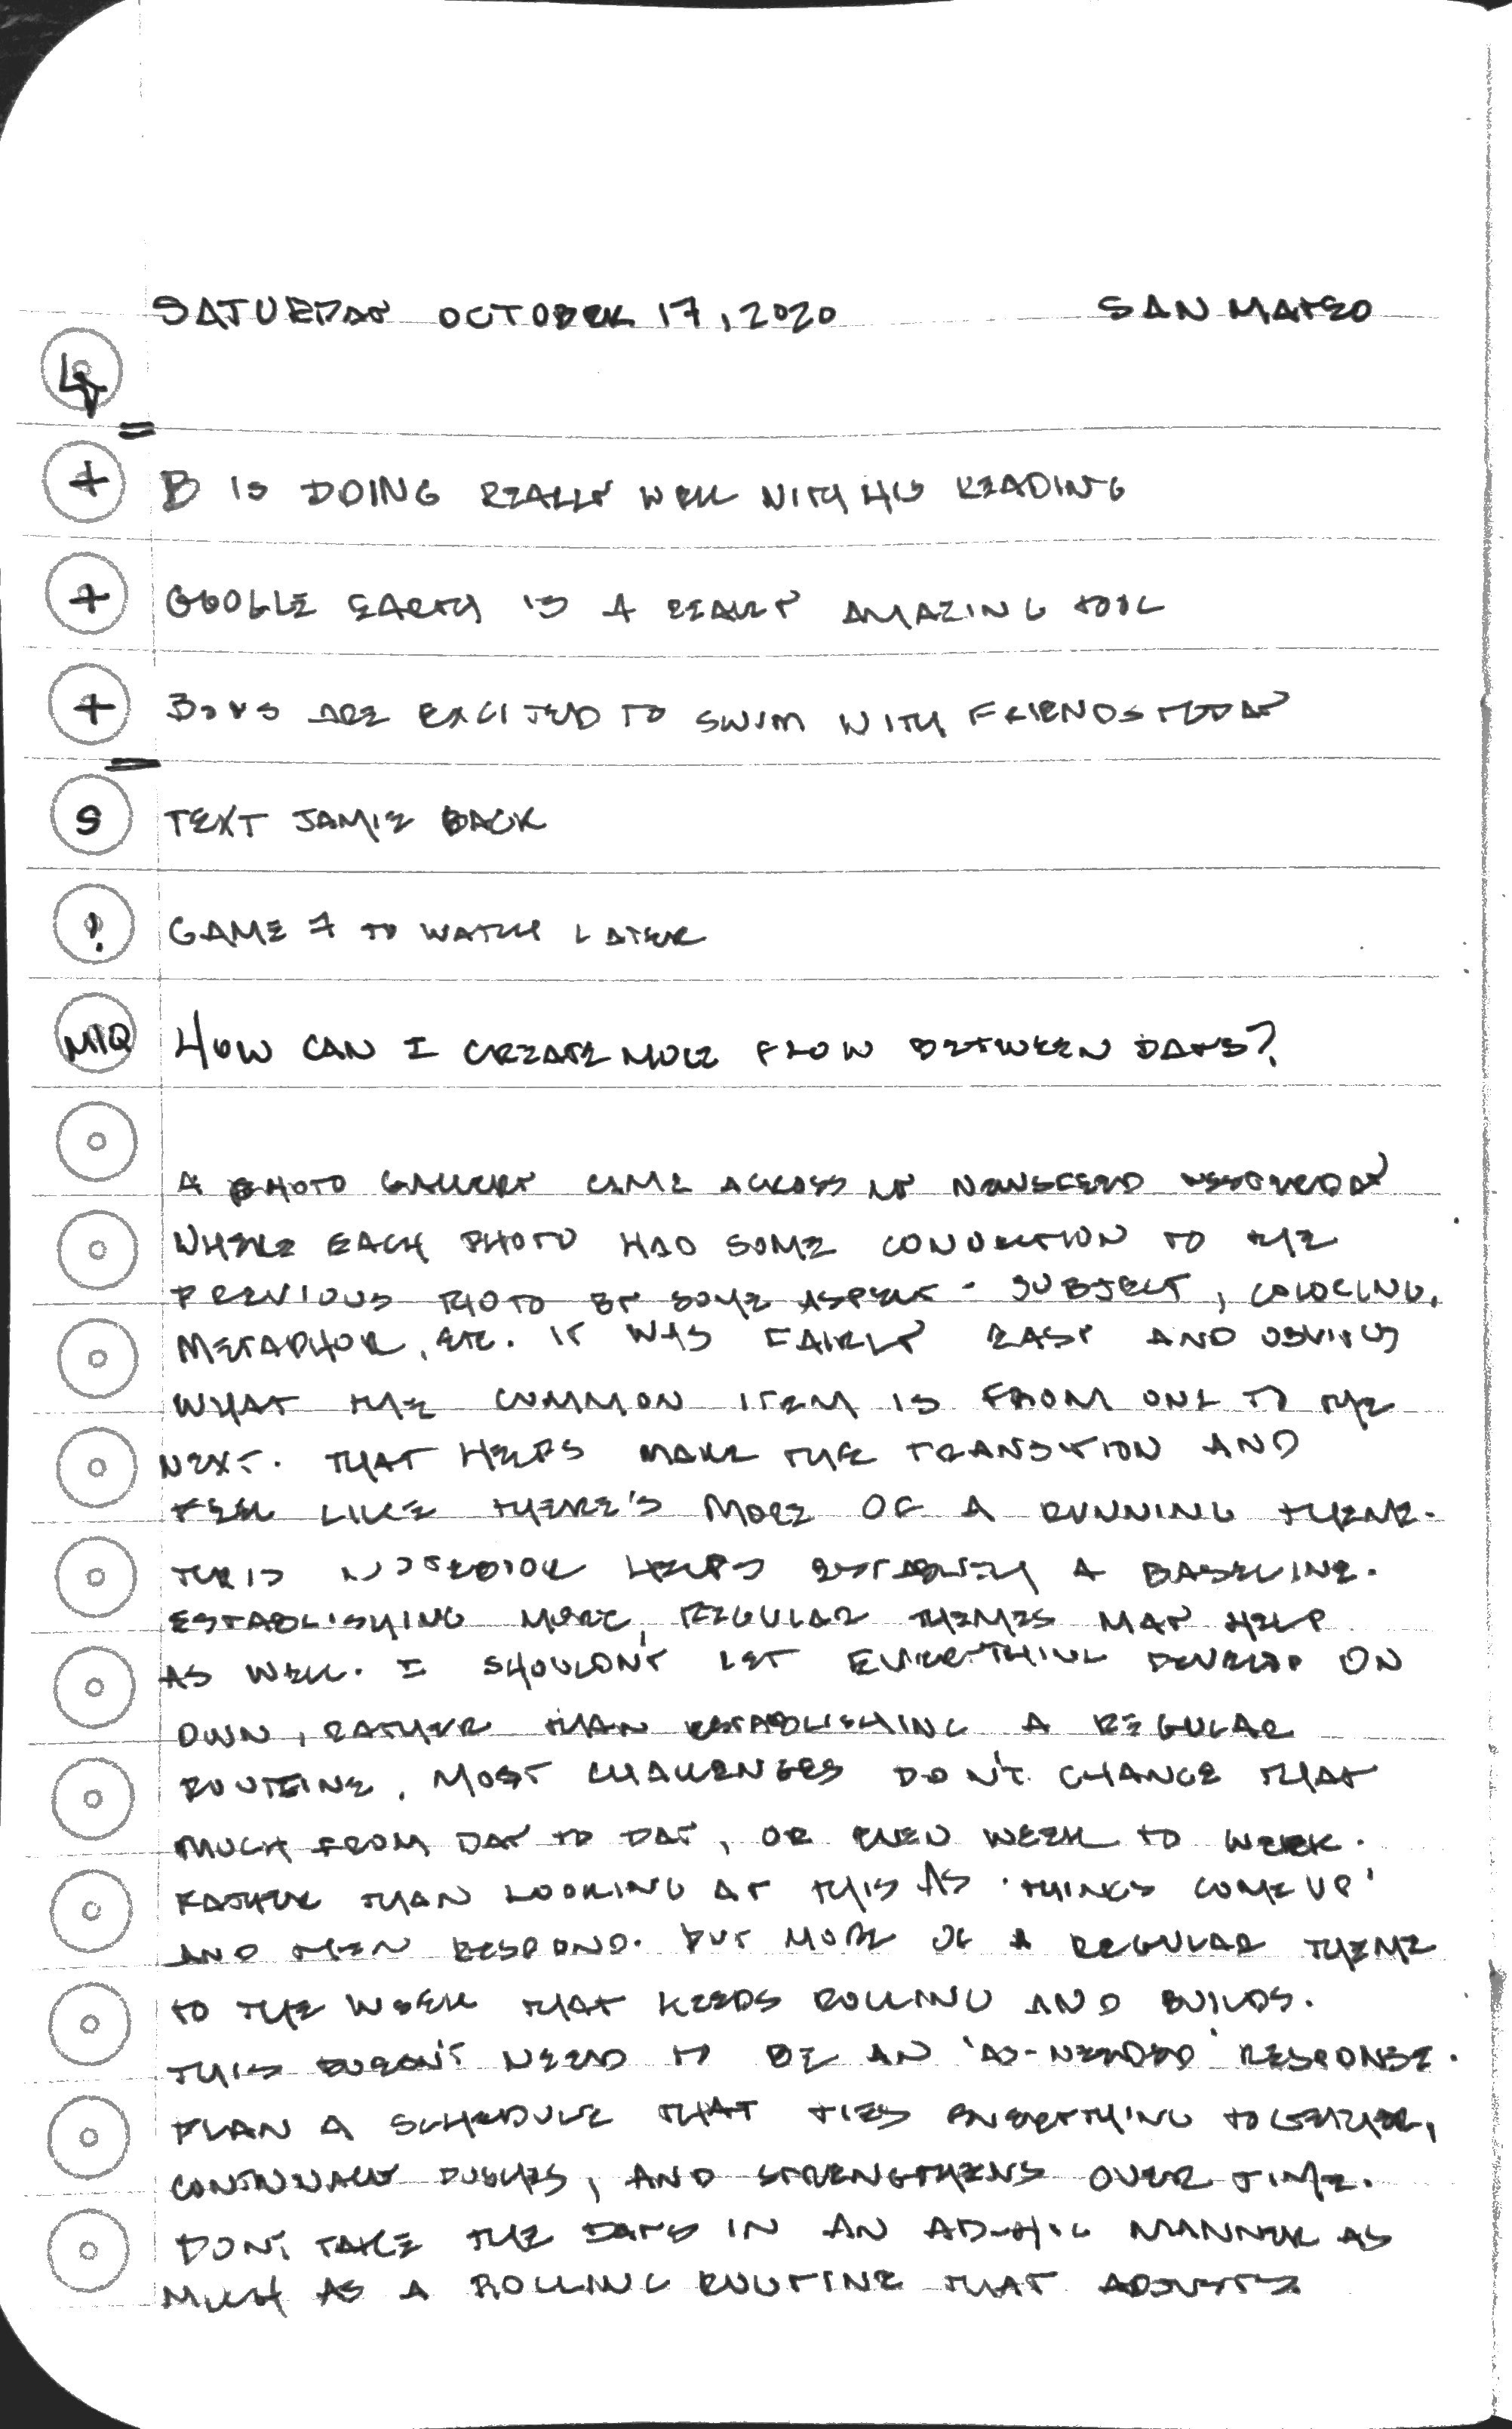 SATURDAY OCTOBER 17, 2020 SAN MATEO
+ B IS DOING REALLY WELL WITH HIS READING
+ GOOGLE EARTH IS A REALLY AMAZING TOOL
+ BOYS ARE EXCITED TO SWIM WITH FRIENDS TODAY
S TEXT JAMIE BACK
! GAME 7 TO WATCH LATER
MIQ HOW CAN I CREATE MORE FLOW BETWEEN DAYS?
A PHOTO GALLERY CAME ACROSS MY NEWSFEED YESTERDAY
WHERE EACH PHOTO HAD SOME CONNECTION TO THE
PREVIOUS PHOTO BY SOME ASPECT - SUBJECT, COLORING,
METAPHOR, ETC. IT WAS FAIRLY EASY AND OBVIOUS
WHAT THE COMMON ITEM IS FROM ONE TO THE
NEXT. THAT HELPS MAKE THE TRANSITION AND
FEEL LIKE THERE'S MORE OF A RUNNING THEME.
THIS NOTEBOOK HELPS ESTABLISH A BASELINE.
ESTABLISHING MORE, REGULAR THEMES MAY HELP
AS WELL. I SHOULDN'T LET EVERYTHING DEVELOP ON
OWN, RATHER THAN ESTABLISHING A REGULAR
ROUTINE. MOST CHALLENGES DON'T CHANGE THAT
MUCH FROM DAY TO DAY, OR EVEN WEEK TO WEEK.
RATHER THAN LOOKING AT THIS AS 'THINGS COME UP'
AND THEN RESPOND. BUT MORE OF A REGULAR THEME
TO THE WEEK THAT KEEPS ROLLING AND BUILDS.
THIS DOESN'T NEED TO BE AN 'AS-NEEDED' RESPONSE.
PLAN A SCHEDULE THAT TIES EVERYTHING TOGETHER,
CONTINUALLY PUSHES, AND STRENGTHENS OVER TIME.
DON'T TAKE THE DAYS IN AN AD-HOC MANNER AS
MUCH AS A ROLLING ROUTINE THAT ADJUSTS